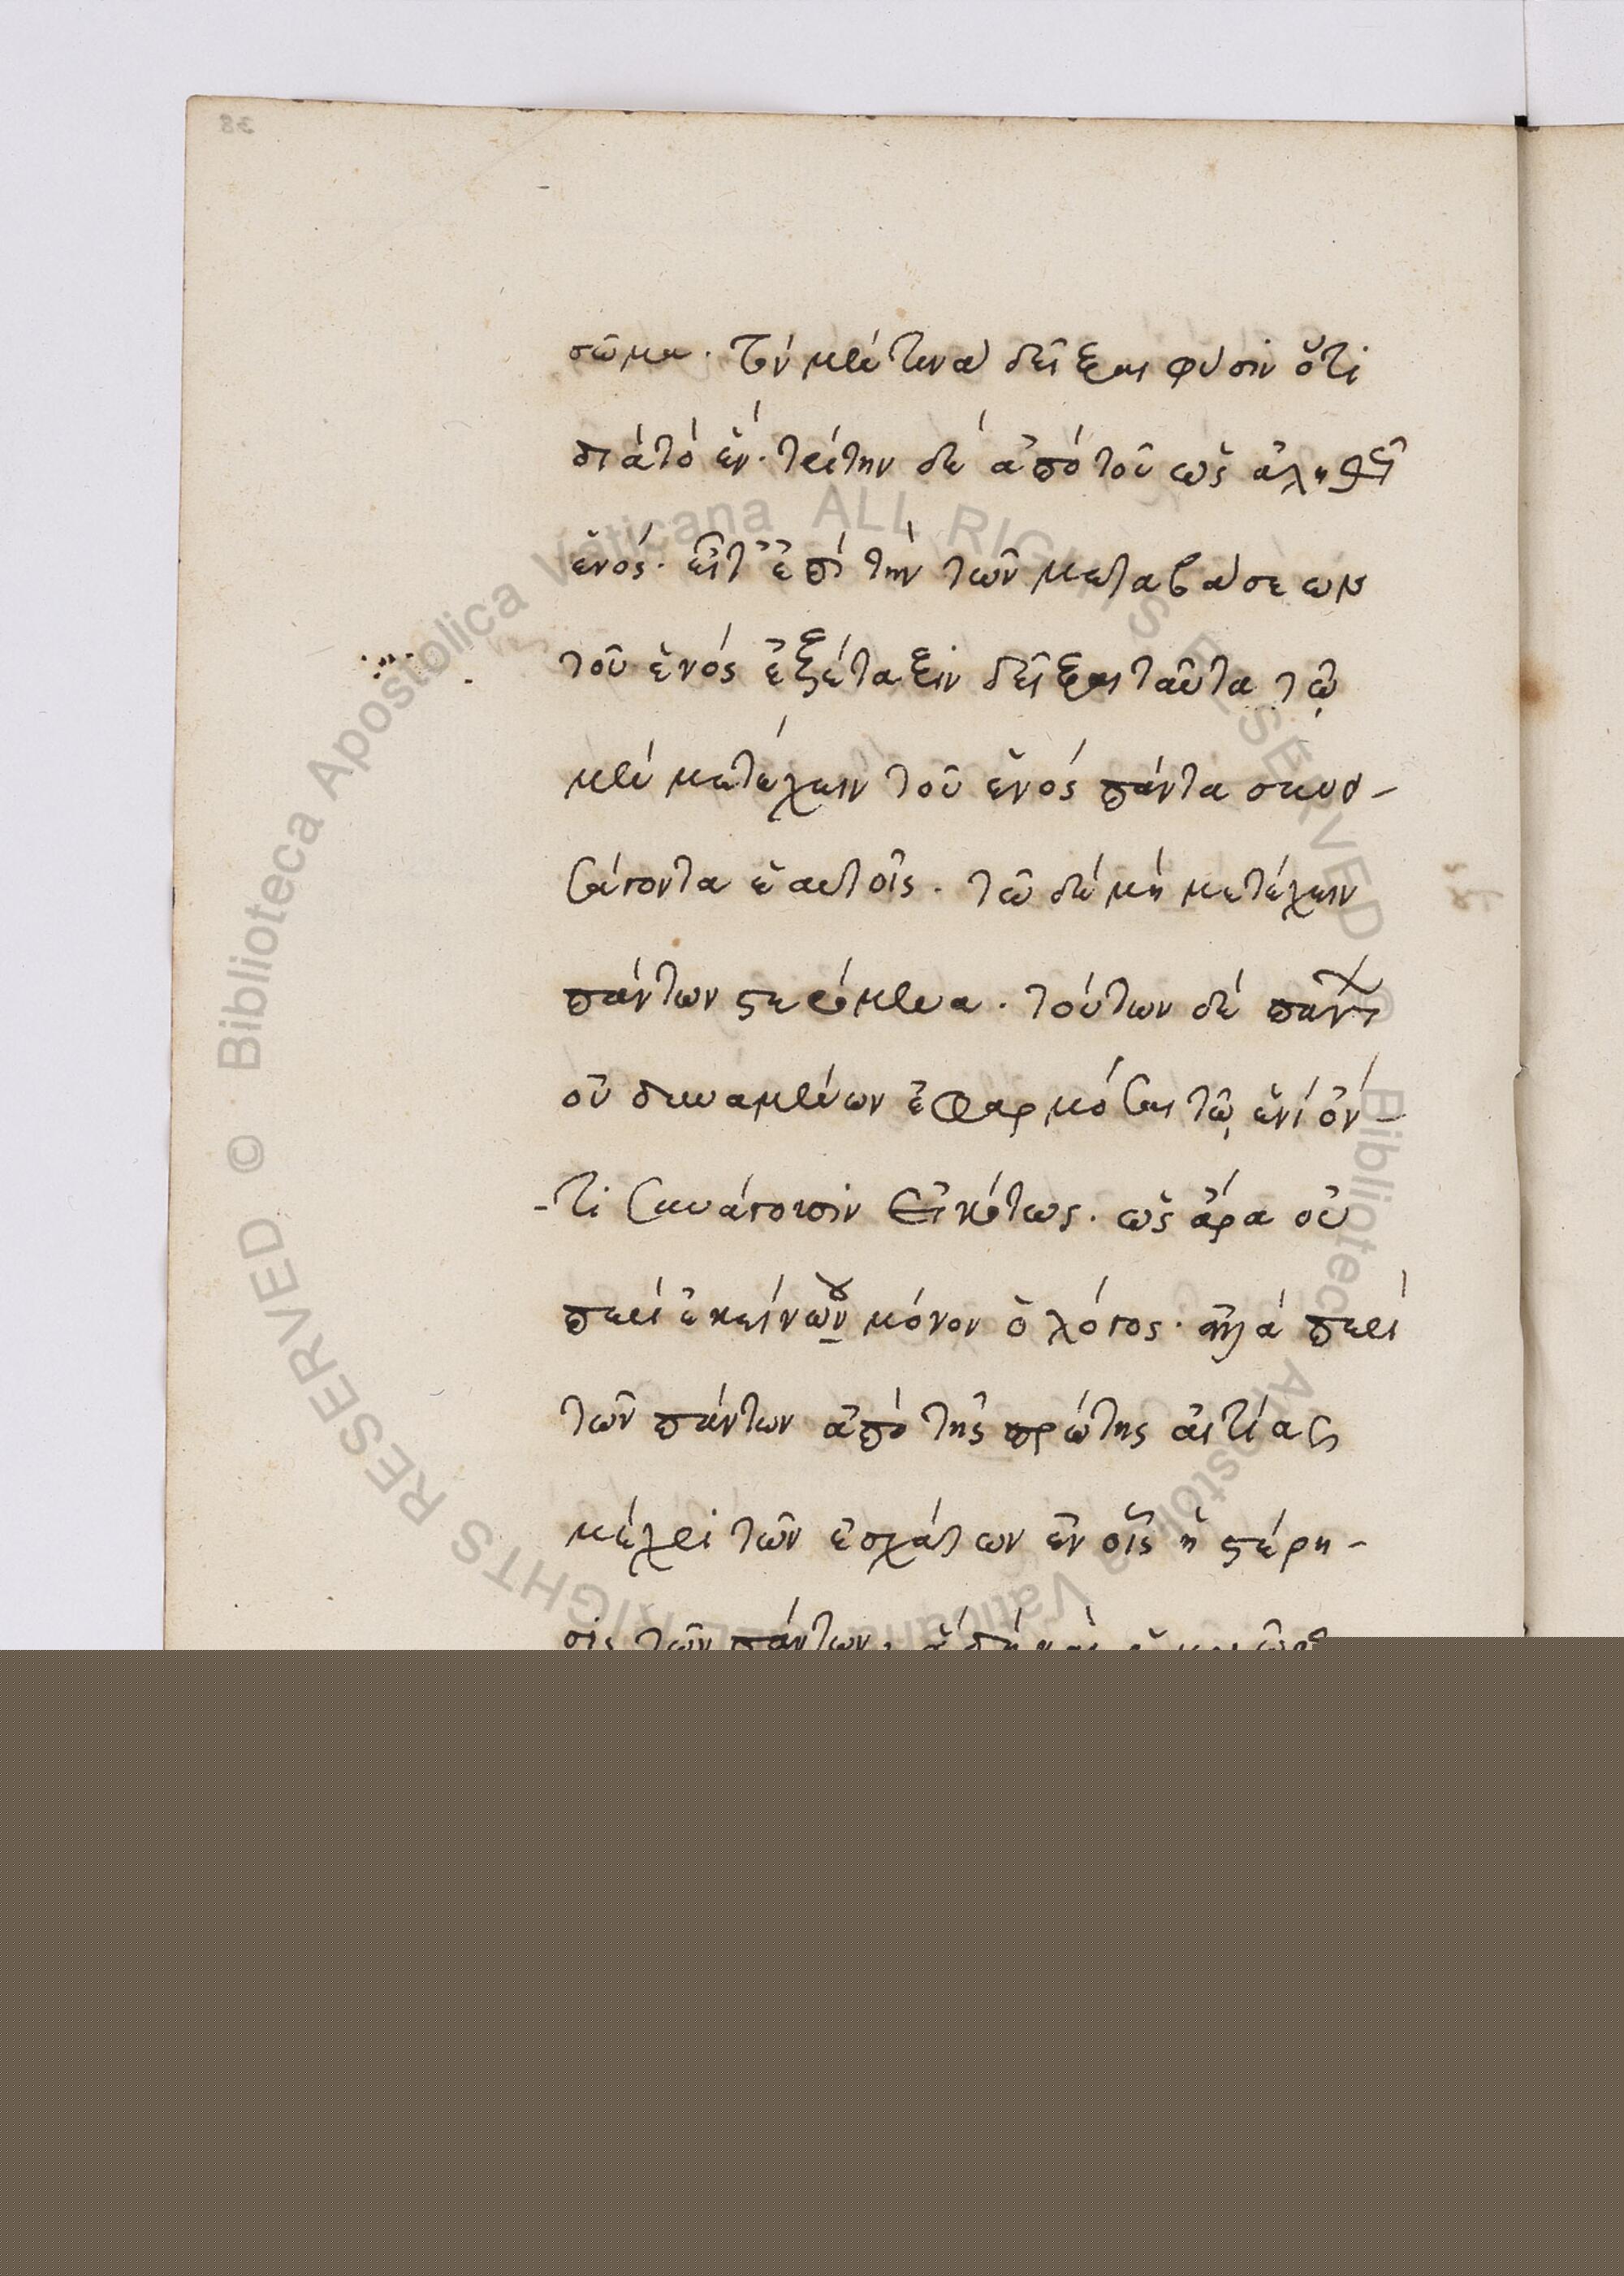 σῶμα. τὴν μέν τινα δεῖξαι φύσιν ὅτι
διὰ τὸ ἕν. τρίτην δὲ ἀπὸ τοῦ ὡς ἀληθῶς
ἑνός. εἶτ' ἐπὶ τὴν τῶν μεταβάσεων
τοῦ ἑνός ἐξέταξιν δεῖξαι ταῦτα τῷ
μὲν μετέχειν τοῦ ἑνός πάντα συνά-
γοντα ἑαυτοῖς. τῶ δὲ μὴ μετέχειν
πάντων στερόμενα. τούτων δὲ πάντων
οὐ δυναμένων ἐφαρμόσαι τῷ ἑνὶ ὄν-
-τι συνάγουσιν εἰκότως. ὡς ἄρα οὐ
περὶ ἐκείνου μόνον ὁ λόγος. ἀλλὰ περὶ
τῶν πάντων ἀπὸ τῆς πρώτης αἰτίας
μέχρι τῶν ἐσχάτων ἐν οἷς ἡ στέρη-
σις τῶν πάντων,
38
© Biblioteca Apostolica Vaticana ALL RIGHTS RESERVED © Biblioteca Apostolica Vaticana ALL RIGHTS RESERVED